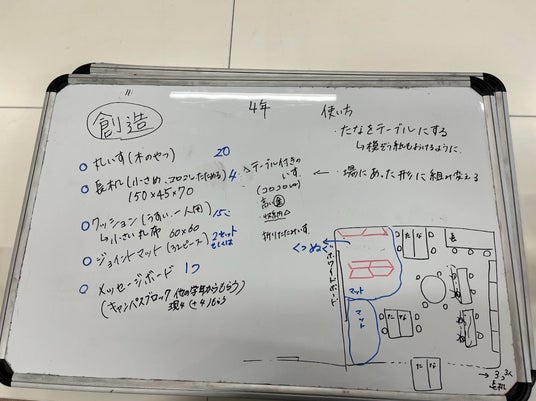 創造
4年
使い方
丸いす(木のやつ) 20
長机(小さめ、コロコロしたためる) 4
150×45×70
クッション(うすい、一人用) 15こ
↳小さい丸布 60×60
ジョイントマット(32ピース) 2セット
もしくは
メッセージボード 1つ
(キャンバスブロック 他の学年からもらう)
現4 (+4)もらう
テーブル付きの
いす
(コロコロ)
高い
収納△
折りたたみいす
・たなをテーブルにする
↳模ぞう紙もおけるように
← ・場にあった形に組み変える
くつぬぐ
ホワイトボード
マット
マット
たな
長
たな
たな
たな
→ 3こ
長机